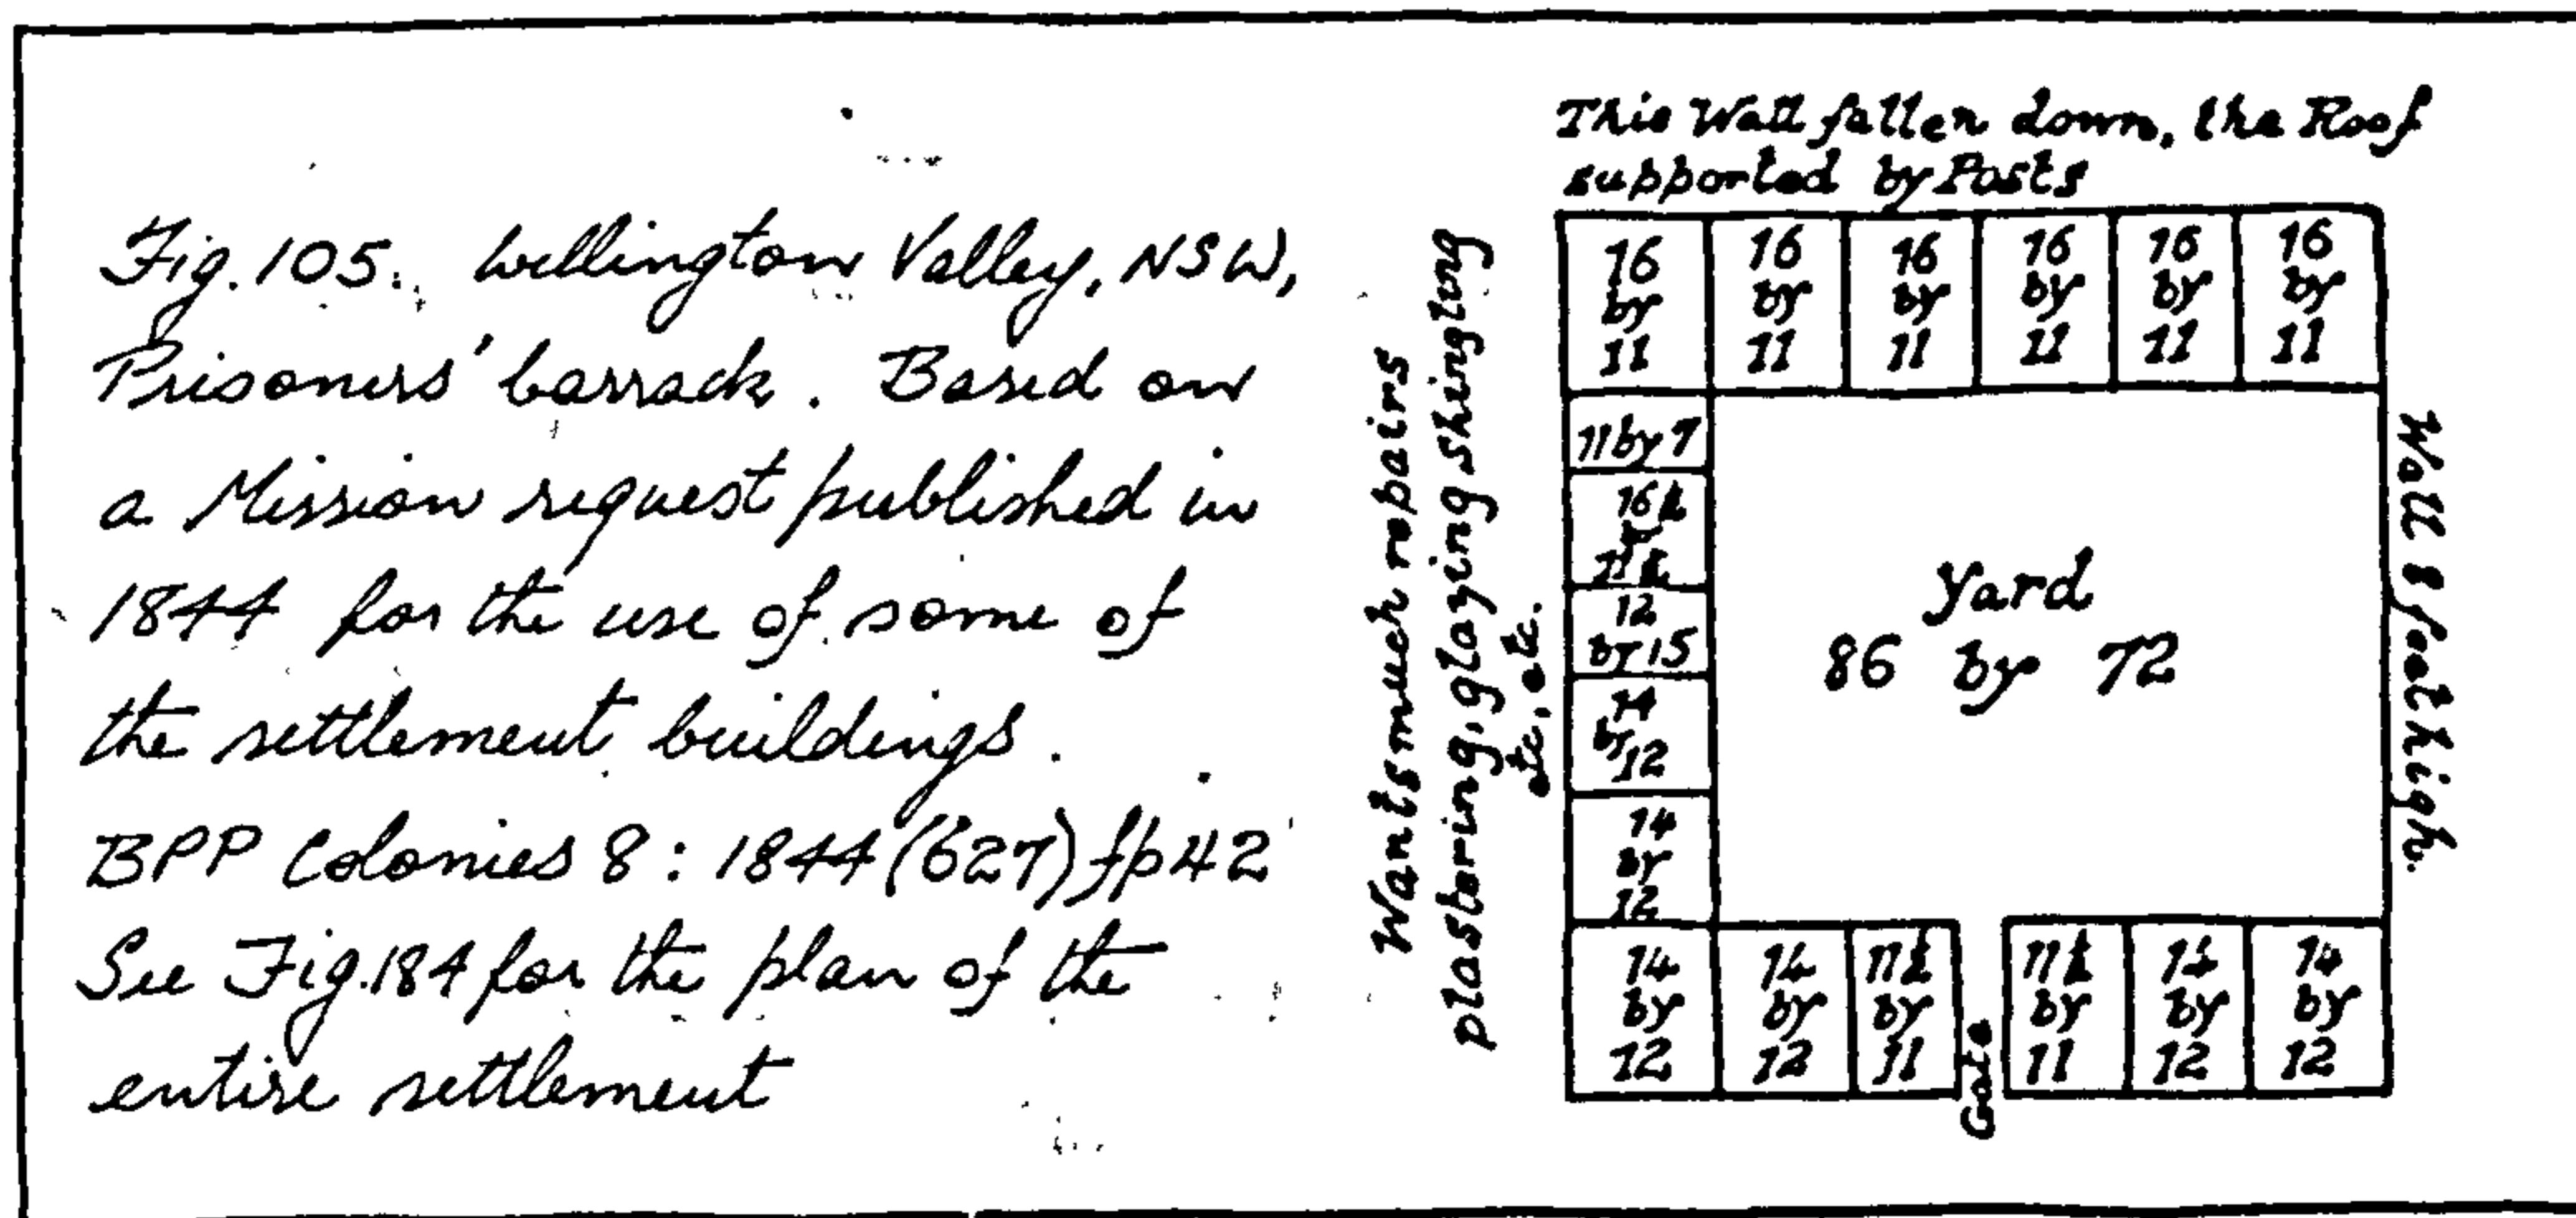 Fig. 105. Wellington Valley, NSW,
Prisoners' barrack. Based on
a Mission request published in
1844 for the use of some of
the settlement buildings.
BPP Colonies 8: 1844 (627) fp 42
See Fig. 184 for the plan of the
entire settlement
This Wall fallen down, the Roof
supported by Posts
Wants much repairs
plastering, glazing shingling
etc, etc.
16
by
11
16
by
11
16
by
11
16
by
11
16
by
11
16
by
11
11 by 7
16½
by
11½
12
by 15
14
by
12
14
by
12
Yard
86 by 72
Wall 8 feet high.
14
by
12
14
by
12
11½
by
11
Gate
11½
by
11
14
by
12
14
by
12